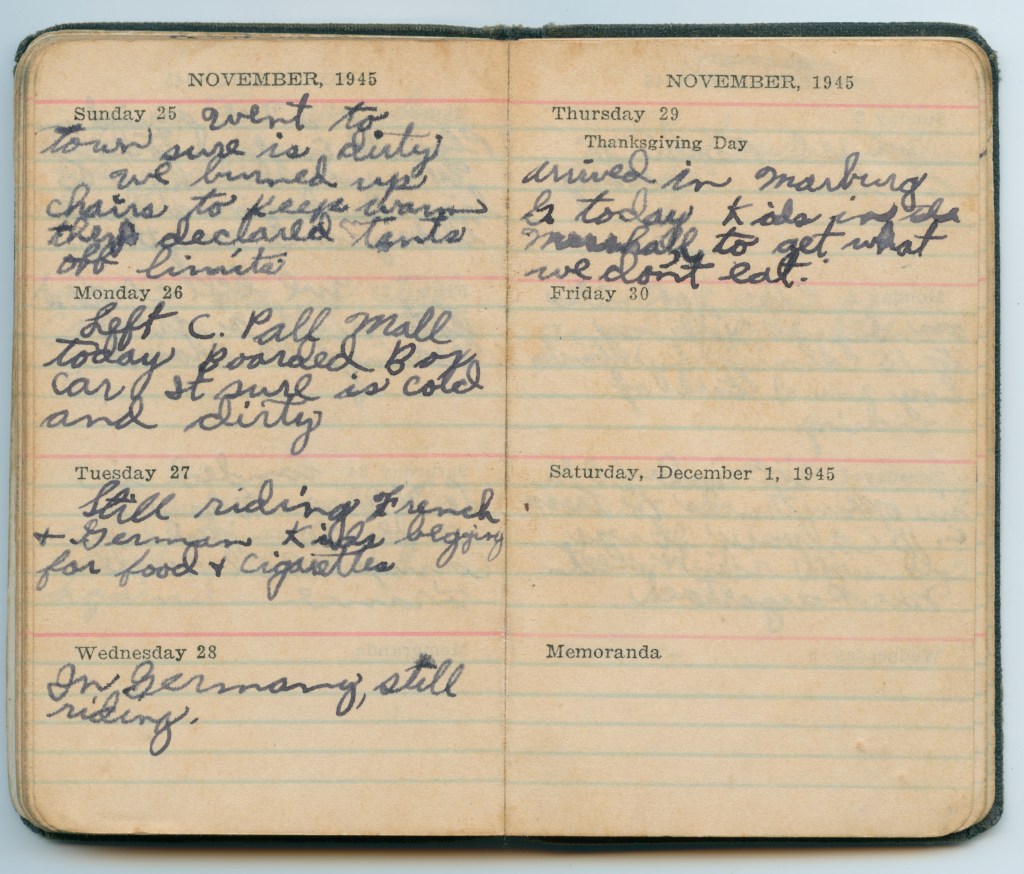 NOVEMBER, 1945
Sunday 25 went to
town sure is dirty
we burned up
chairs to keep warm
they declared tents
off limits
Monday 26
Left C. Pall Mall
today Boarded Box
car It sure is cold
and dirty
Tuesday 27
Still riding French
+ German Kids begging
for food + cigarettes
Wednesday 28
In Germany, still
riding.
NOVEMBER, 1945
Thursday 29
Thanksgiving Day
arrived in Marburg
G today Kids in
to get what
we don't eat.
Friday 30
Saturday, December 1, 1945
Memoranda